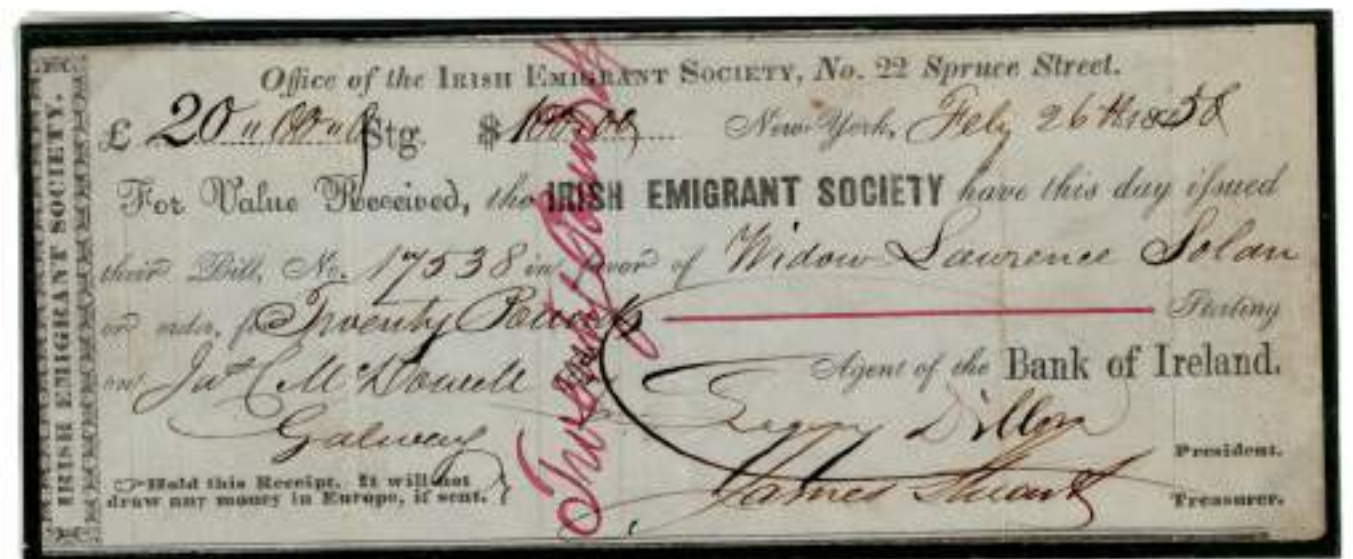 IRISH EMIGRANT SOCIETY.
Office of the IRISH EMIGRANT SOCIETY, No. 22 Spruce Street.
£ 20 " 00 " 0 Stg. $ 100.00 New York, Feby 26th 1858
For Value Received, the IRISH EMIGRANT SOCIETY have this day issued
their Bill, No. 17538 in favor of Widow Lawrence Solan
or order, for Twenty Pounds Sterling
on Jas C McDowell Agent of the Bank of Ireland.
Galway
Gregory Dillon President.
James Stuart Treasurer.
Hold this Receipt. It will not
draw any money in Europe, if sent.
Twenty Pounds